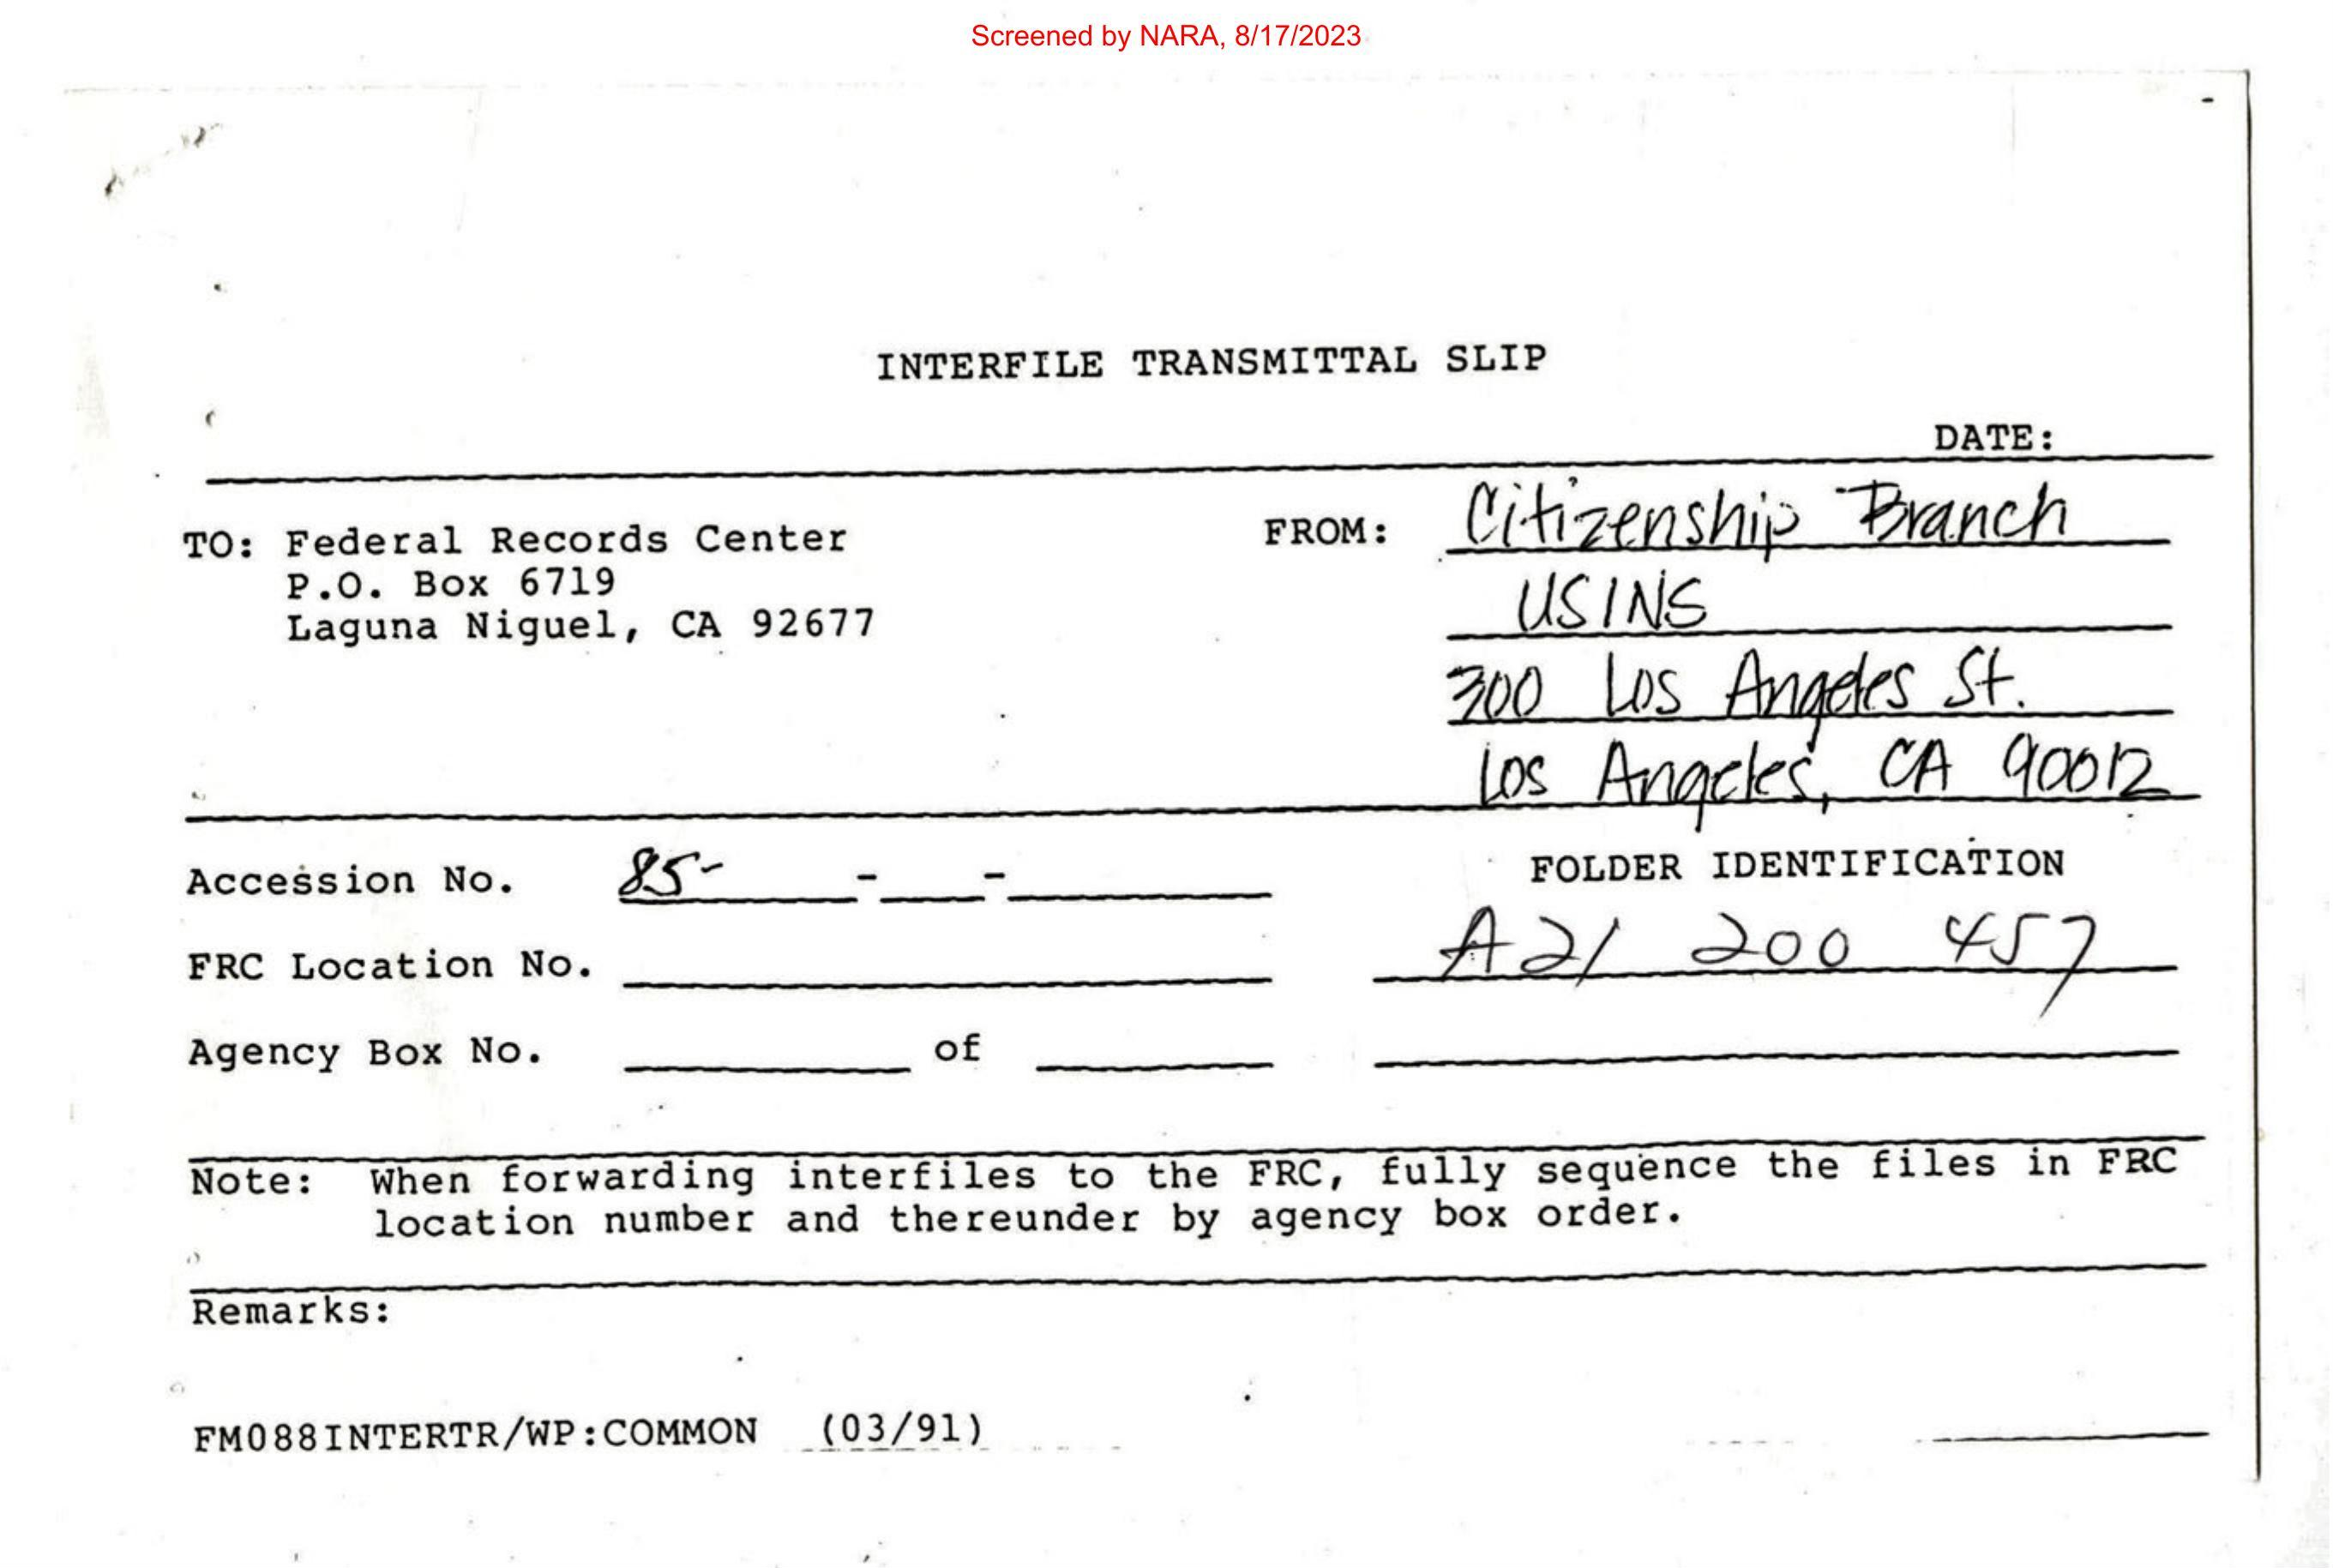 Screened by NARA, 8/17/2023
INTERFILE TRANSMITTAL SLIP
DATE:
TO: Federal Records Center
P.O. Box 6719
Laguna Niguel, CA 92677
FROM: Citizenship Branch
USINS
300 Los Angeles St.
Los Angeles, CA 90012
Accession No. 85- - -
FRC Location No.
Agency Box No. of
FOLDER IDENTIFICATION
A21 200 457
Note: When forwarding interfiles to the FRC, fully sequence the files in FRC
location number and thereunder by agency box order.
Remarks:
FM088INTERTR/WP:COMMON (03/91)